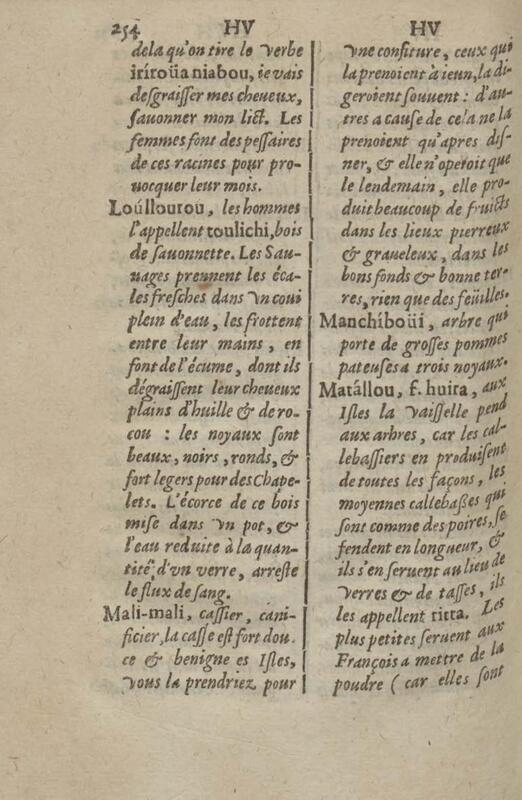 254 HV HV
dela qu'on tire le verbe
iríroüa niabou, ie vais
desgraisser mes cheueux,
sauonner mon lict. Les
femmes font des pessaires
de ces racines pour pro-
uocquer leur mois.
Loúllourou, les hommes
l'appellent toulichi, bois
de sauonnette. Les Sau-
uages prennent les éca-
les fresches dans vn coui
plein d'eau, les frottent
entre leur mains, en
font de l'écume, dont ils
dégraissent leur cheueux
plains d'huille & de ro-
cou : les noyaux sont
beaux, noirs, ronds, &
fort legers pour des Chape-
lets. L'écorce de ce bois
mise dans vn pot, &
l'eau reduite à la quan-
tité d'vn verre, arreste
le flux de sang.
Mali-mali, cassier, cani-
ficier, la casse est fort dou-
ce & benigne es Isles,
vous la prendriez pour
vne confiture, ceux qui
la prenoient à ieun, la di-
geroient souuent : d'au-
tres a cause de cela ne la
prenoient qu'apres dis-
ner, & elle n'operoit que
le lendemain, elle pro-
duit beaucoup de fruicts
dans les lieux pierreux
& graueleux, dans les
bons fonds & bonne ter-
res, rien que des feüilles.
Manchíboüi, arbre qui
porte de grosses pommes
pateuses a trois noyaux.
Matállou, f. huira, aux
Isles la vaisselle pend
aux arbres, car les cal-
lebassiers en produisent
de toutes les façons, les
moyennes callebaßes qui
sont comme des poires, se
fendent en longueur, &
ils s'en seruent au lieu de
verres & de tasses, ils
les appellent ritta. Les
plus petites seruent aux
François a mettre de la
poudre ( car elles sont